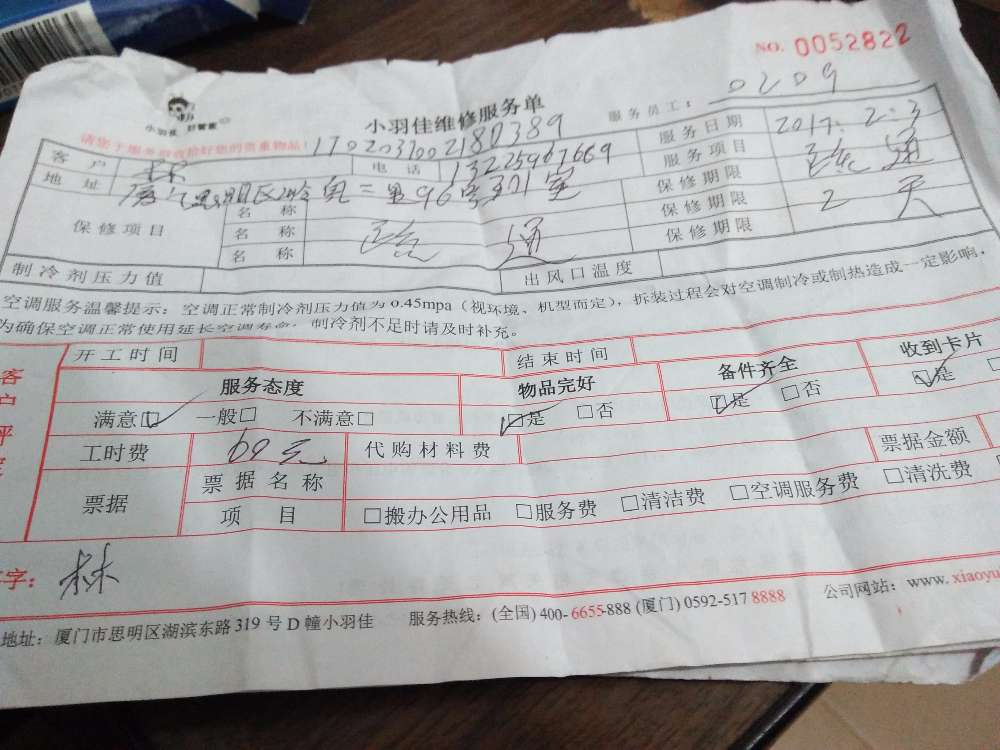 NO. 0052822
小羽佳 好管家
小羽佳维修服务单
服务员工： 0209
请您于服务前收拾好您的贵重物品！
1702031002180389
服务日期 2017.2.3
客户 林 电话 13225967669
服务项目 疏通
地址
保修期限
保修项目
名称
名称 疏通
保修期限 2天
名称
保修期限
制冷剂压力值
出风口温度
空调服务温馨提示：空调正常制冷剂压力值为0.45mpa（视环境、机型而定），拆装过程会对空调制冷或制热造成一定影响，
为确保空调正常使用延长空调寿命，制冷剂不足时请及时补充。
开工时间 结束时间
服务态度 物品完好 备件齐全 收到卡片
满意☑ 一般□ 不满意□ ☑是 □否 ☑是 □否 ☑是 □
工时费 69元 代购材料费 票据金额
票据 票据名称
项目 □搬办公用品 □服务费 □清洁费 □空调服务费 □清洗费 □
客户评
字： 林
地址：厦门市思明区湖滨东路319号D幢小羽佳 服务热线：(全国) 400-6655-888 (厦门) 0592-517 8888 公司网站：www. xiaoyu